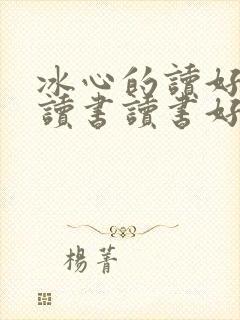 冰心的讀好
讀書讀書好
楊菁